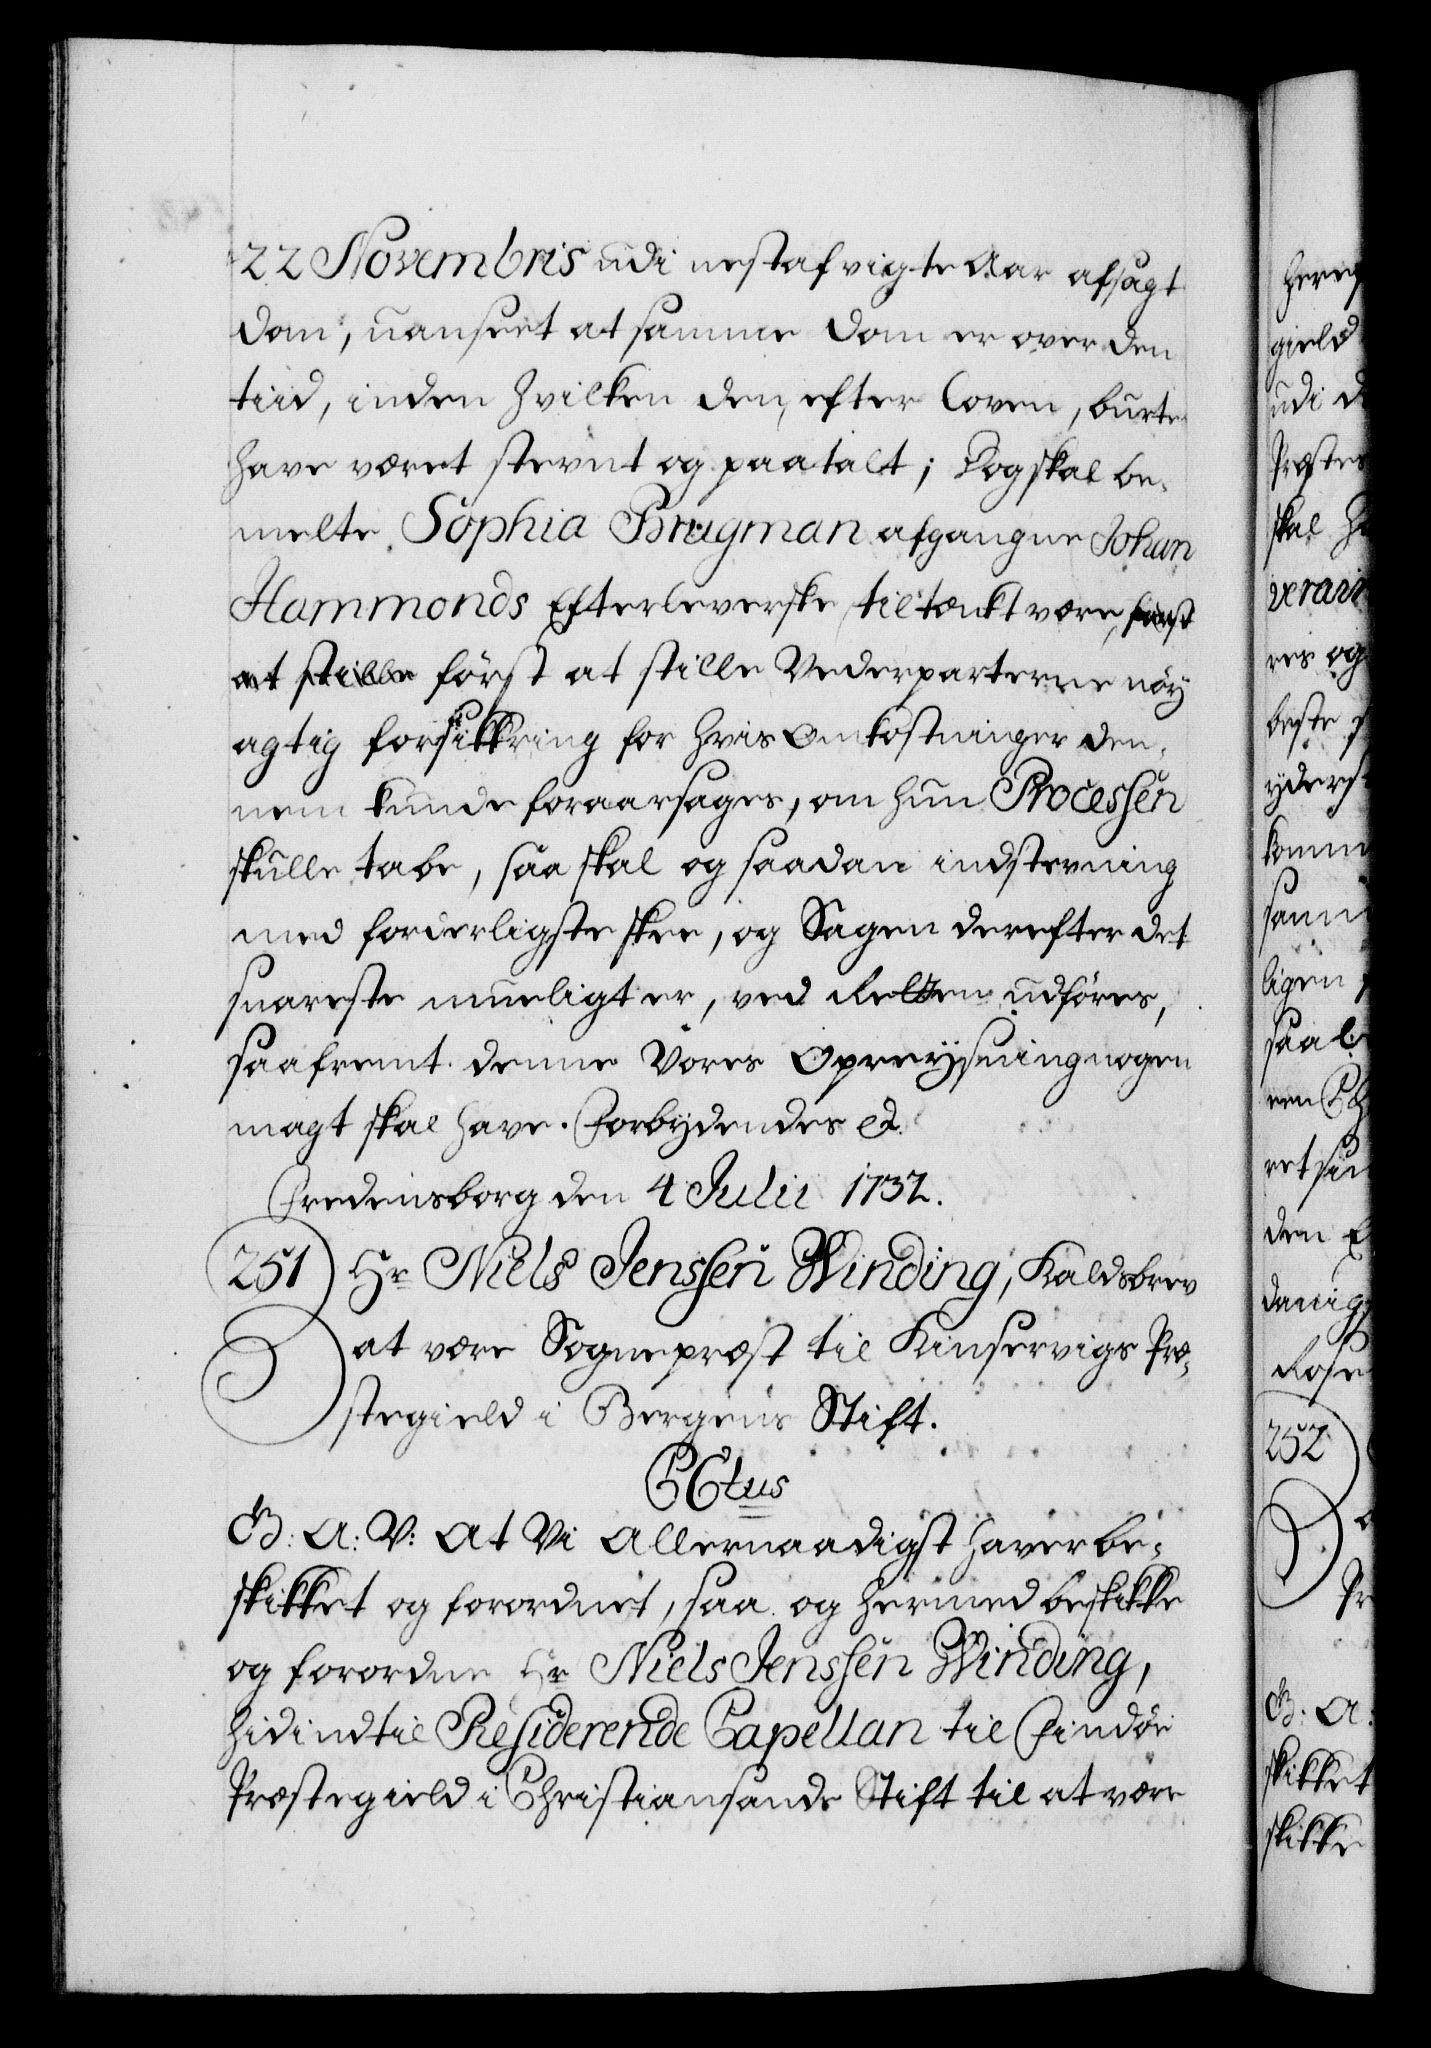 22 Novembris udi nestafvigte Aar afsagt
Dom, uanseet at samme Dom er over den
tiid, inden hvilken den, efter Loven, burte
have været stevnt og paatalt; Dog skal be-
melte Sophia Brugman afgangne Johan
Hammonds Efterleverske tiltenkt være, først
at stille først at stille Vederparterne nöy
agtig forsikkring for hvis Omkostninger den-
nem kunde foraarsages, om hun Processen
skulle tabe, saa skal og saadan indstevning
med forderligste skee, og Sagen derefter det
snareste mueligt er, ved Retten udføres,
saafremt denne Vores Opreysning nogen
magt skal have. Forbydendes &.
Fredensborg den 4 Julii 1732.
251 Hr Niels Jenssen Winding, Kaldsbrev
at være Sognepræst til Kinservigs Præ-
stegield i Bergens Stift.
C6tus
G: A: V: At Vi Allernaadigst haver be-
skikket og forordnet, saa og hermed beskikke
og forordne Hr Niels Jenssen Winding,
hidindtil Residerende Capellan til Findöe
Præstegield i Christiansands Stift til at være
hereg
gield
udi d
Præstes
skal he
verair
res og
beste
yderst
komm
samm
ligen
saal
een Ch
ret sin
den E
danig
Rose
252
Pr
G: A:
skikket
skikke